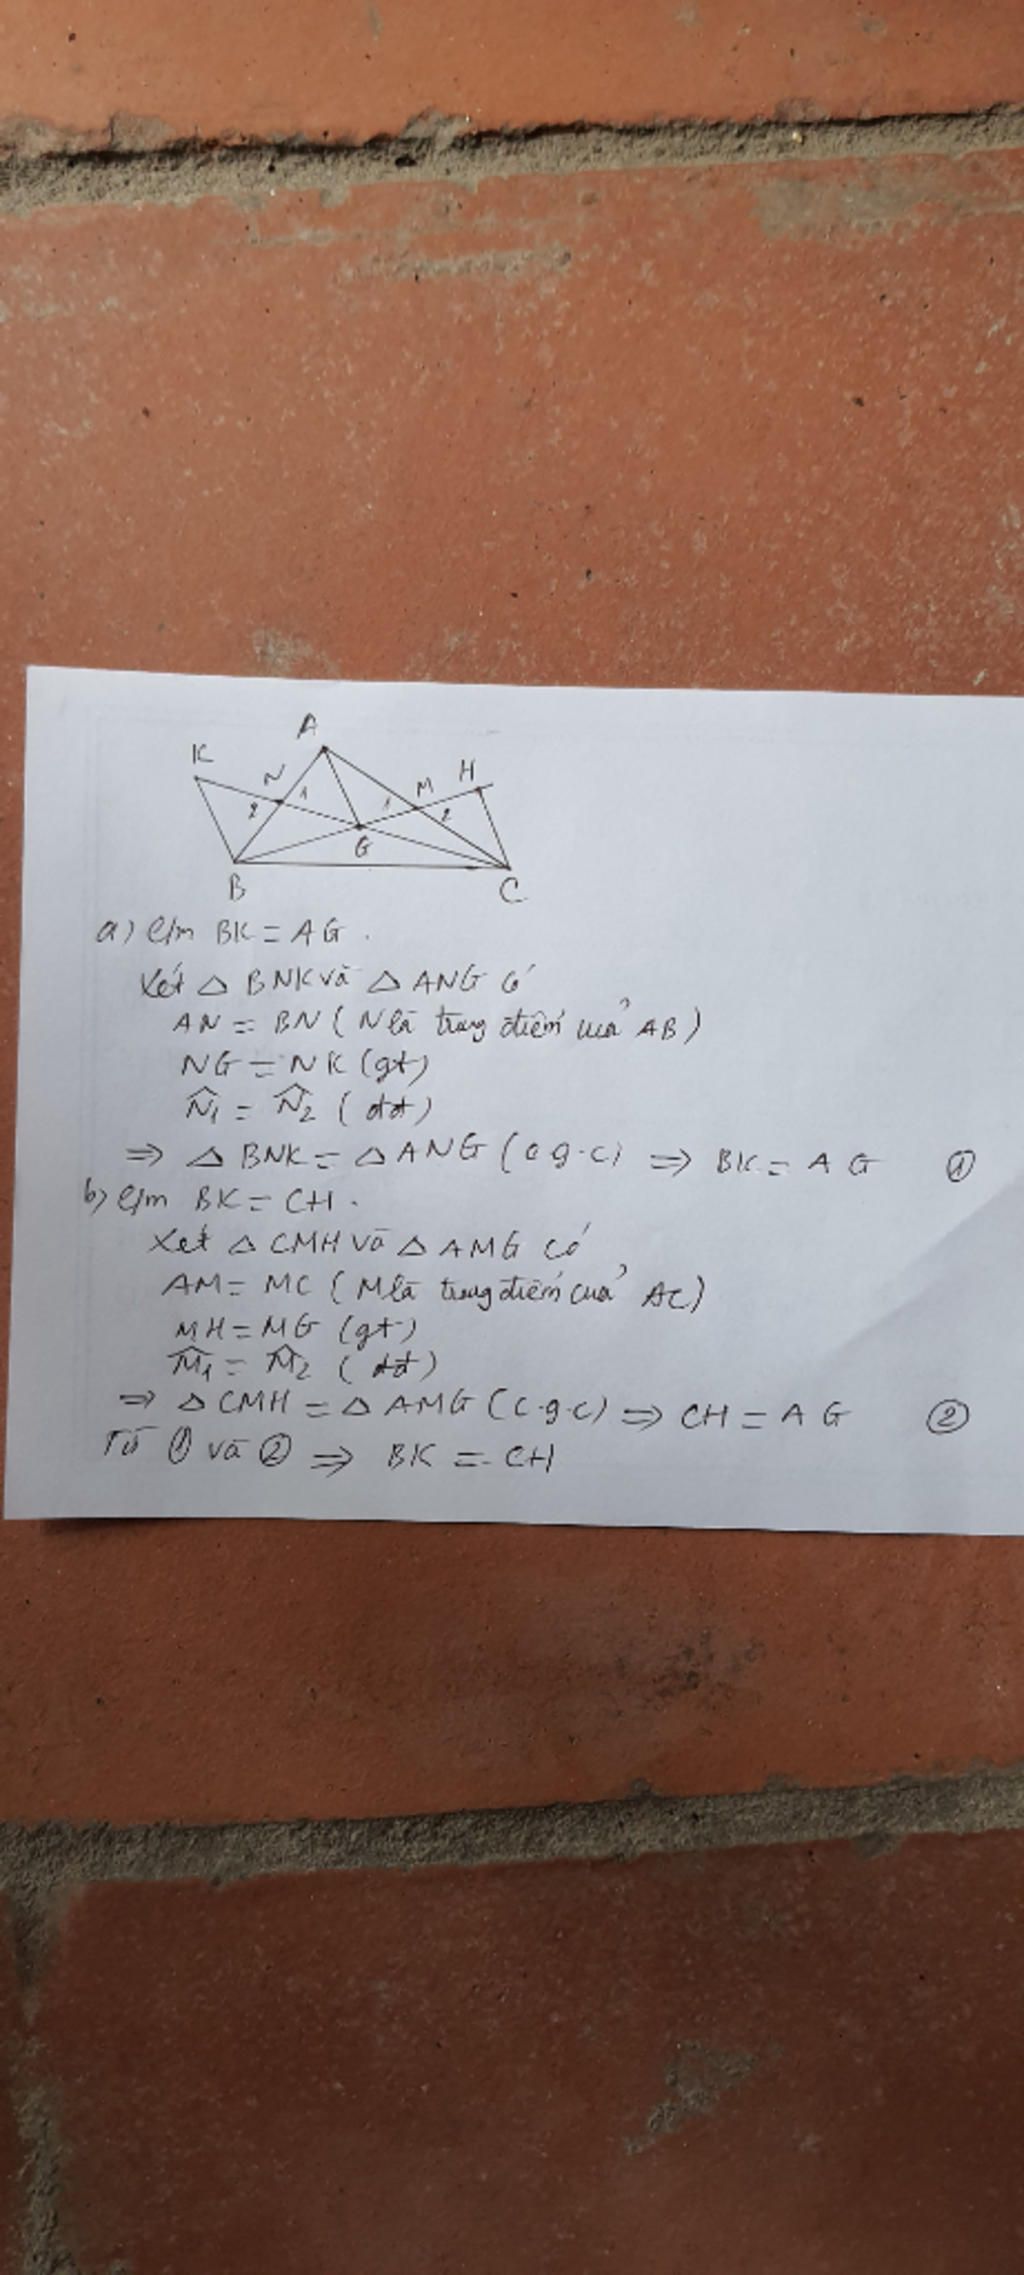 A
K
N
M
H
2
1
1
2
G
B
C
a) C/m BK = AG.
Xét △ BNK và △ ANG có
AN = BN (N là trung điểm của AB)
NG = NK (gt)
N̂₁ = N̂₂ (đđ)
⇒ △ BNK = △ ANG (c.g.c) ⇒ BK = AG ①
b) C/m BK = CH.
Xét △ CMH và △ AMG có
AM = MC (M là trung điểm của AC)
MH = MG (gt)
M̂₁ = M̂₂ (đđ)
⇒ △ CMH = △ AMG (c.g.c) ⇒ CH = AG ②
Từ ① và ② ⇒ BK = CH